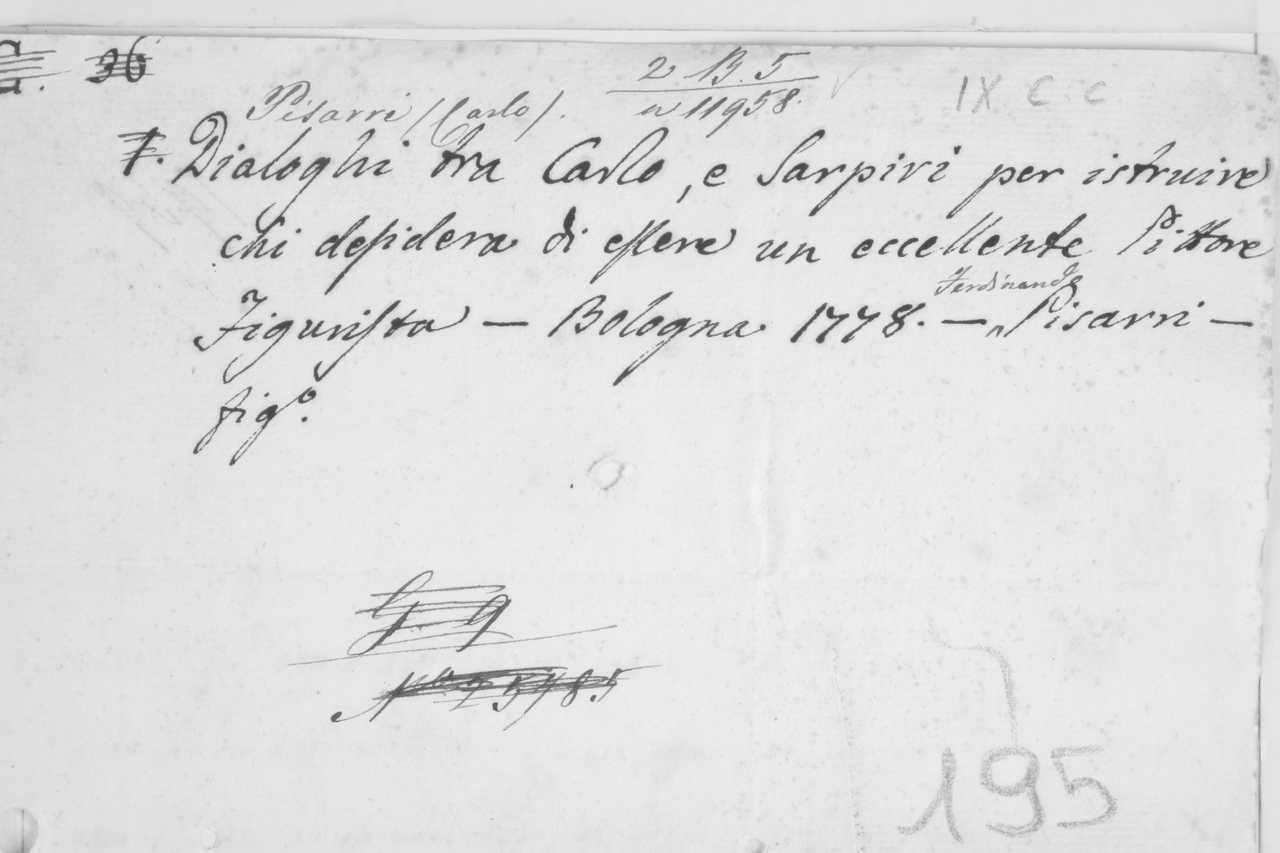 36
2 B. 5
IX C C
Pisarri (Carlo).
n 11958.
7. Dialoghi tra Carlo, e Sarpiri per istruire
chi deſidera di eſſere un eccellente Pittore
Ferdinando
Figuriſta — Bologna 1778. — Pisarri —
figº.
G 9
195